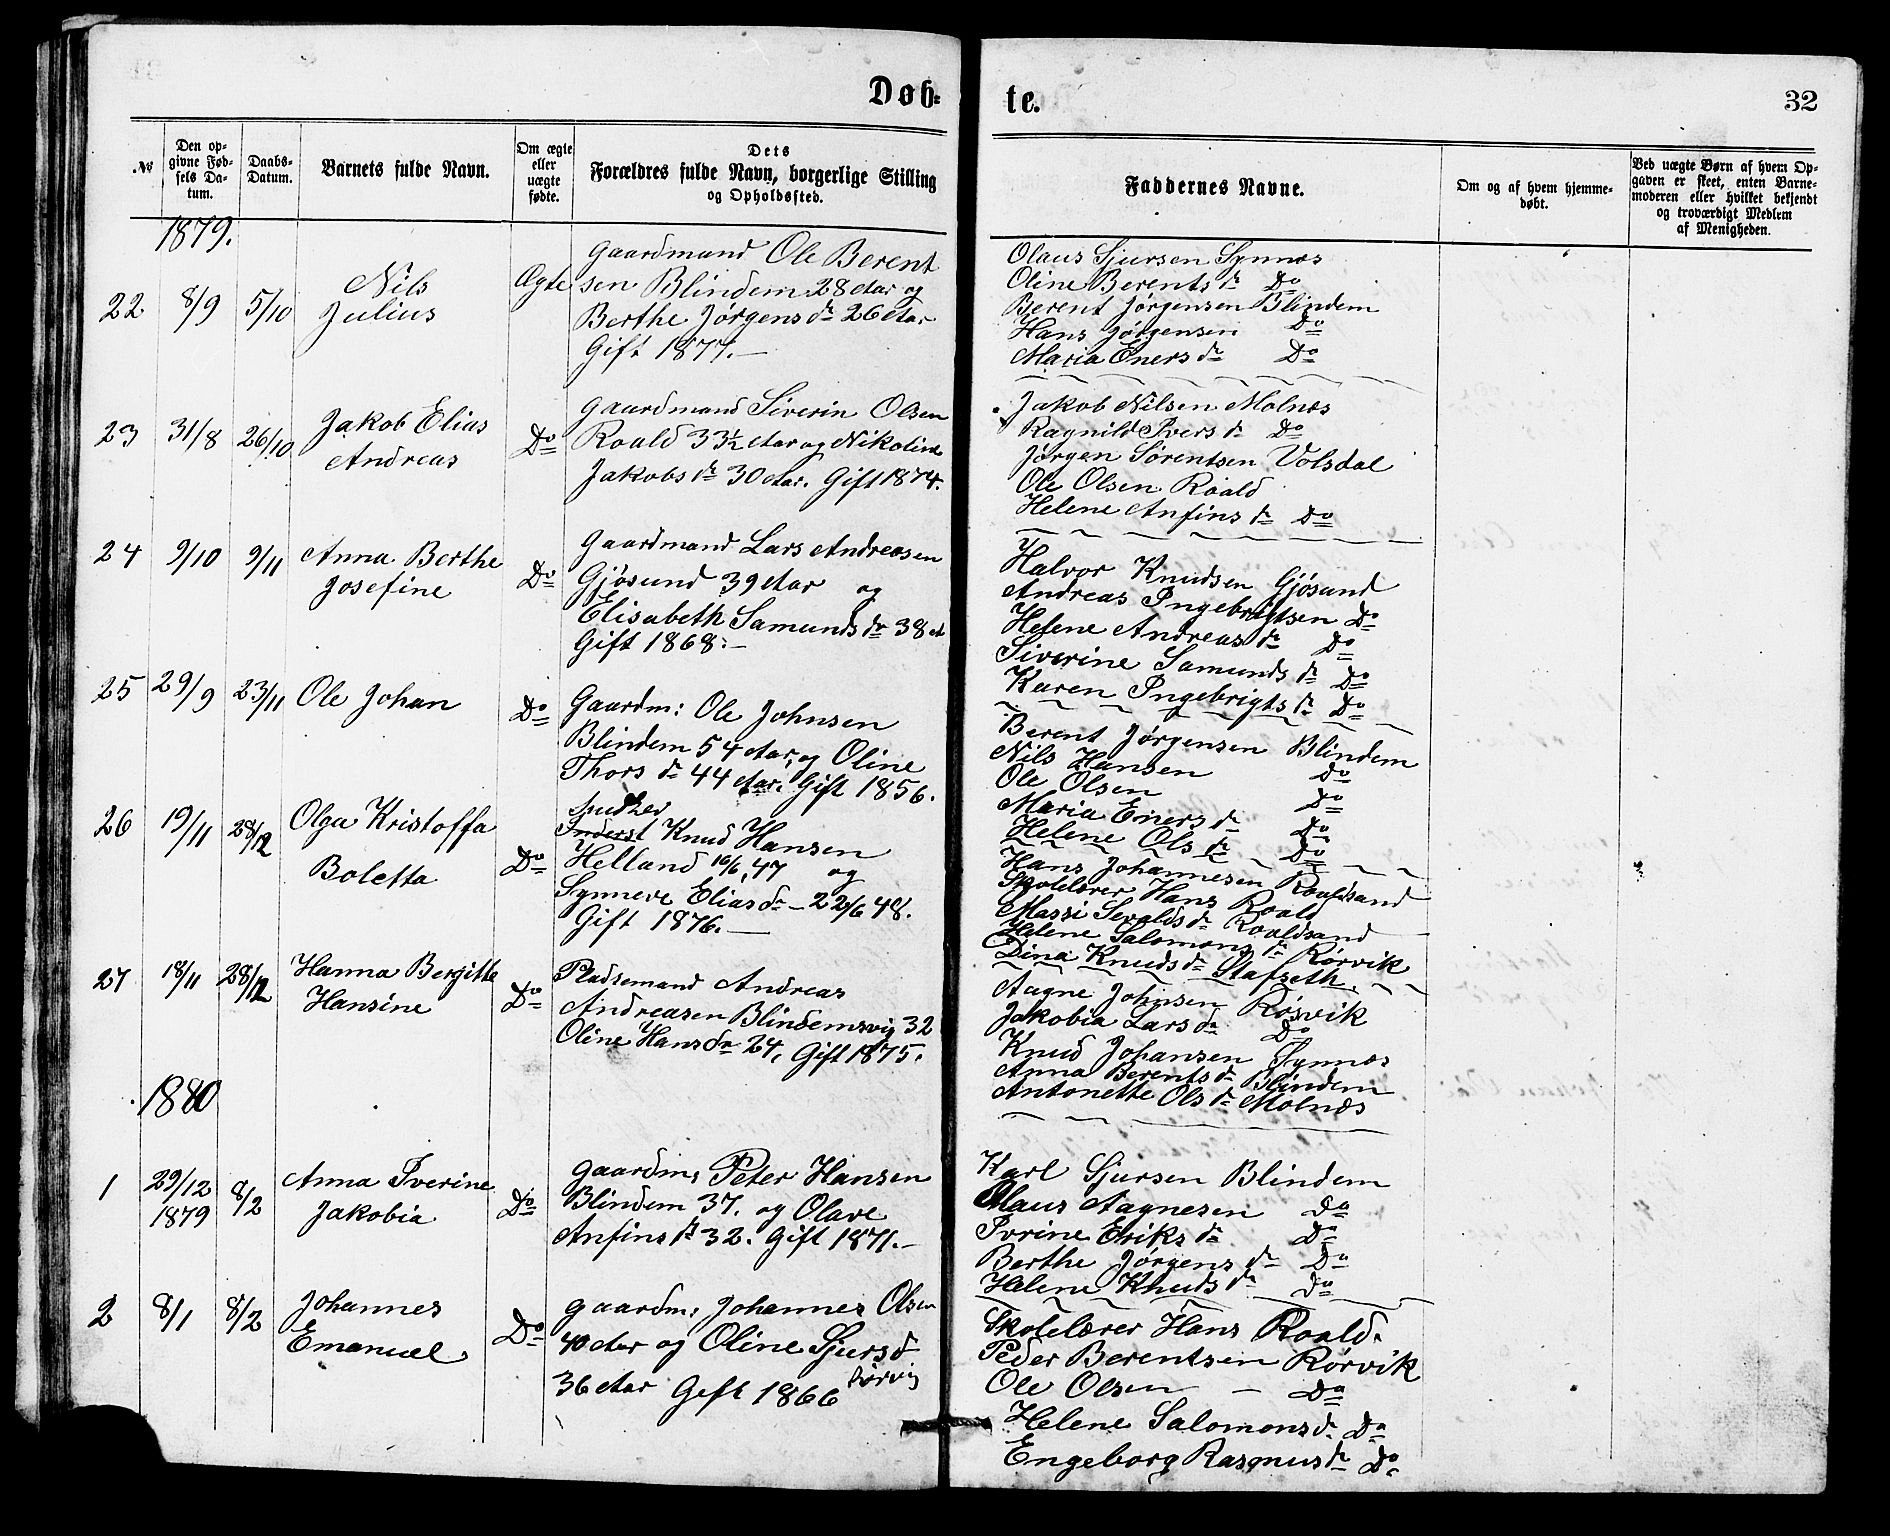 Døb=
te.
32
№
Den op-
givne Fød-
sels Da-
tum.
Daabs-
Datum.
Barnets fulde Navn.
Om ægte
eller
uægte
fødte.
Dets
Forældres fulde Navn, borgerlige Stilling
og Opholdssted.
Faddernes Navne.
Om og af hvem hjemme-
døbt.
Ved uægte Børn af hvem Op-
gaven er skeet, enten Barne-
moderen eller hvilket bekjendt
og troværdigt Medlem
af Menigheden.
1879.
22 8/9 5/10
Nils
Julius
Ægte
Gaardmand Ole Berent
sen Blindem 28 Aar og
Berthe Jørgens dr 26 Aar
Gift 1877.—
Olaus Sjursen Synnæs
Oline Berents dr Do
Berent Jørgensen Blindem
Hans Jørgensen Do
Maria Eners dr Do
23 31/8 26/10
Jakob Elias
Andreas
Do
Gaardmand Siverin Olsen
Roald 33½ Aar og Nikoline
Jakobs dr 30 Aar. Gift 1874.
Jakob Nilsen Molnæs
Ragnild Ivers dr Do
Jørgen Sørentsen Volsdal
Ole Olsen Roald
Helene Anfins dr Do
24 9/10 9/11
Anna Berthe
Josefine
Do
Gaardmand Lars Andreasen
Gjøsund 39 Aar og
Elisabeth Samunds dr 38 A
Gift 1868.—
Halvor Knudsen Gjøsund
Andreas Ingebrigtsen Do
Helene Andreas dr Do
Siverine Samunds dr Do
Karen Ingebrigts dr Do
25 29/9 23/11
Ole Johan
Do
Gaardm: Ole Johnsen
Blindem 54 Aar, og Oline
Thors dr 44 Aar. Gift 1856.
Berent Jørgensen Blindem
Nils Hansen Do
Ole Olsen Do
Maria Eners dr Do
Helene Ols dr Do
26 19/11 28/12
Olga Kristoffa
Boletta
Do
Inderst Knud Hansen
Helland 16/6, 47 og
Synneve Elias dr — 22/6 48.
Gift 1876.—
Hans Johannesen Roaldsand
Skolelærer Hans Roald
Massi Sevalds dr Roaldsand
Helene Salomons dr Rørvik
Dina Knuds dr Stafseth.
27 18/11 28/12
Hanna Bergitte
Hansine
Do
Pladsemand Andreas
Andreasen Blindemsvig 32
Oline Hans dr 24, Gift 1875.
Aagne Johnsen Rørvik
Jakobia Lars dr Do
Knud Johansen Synnæs
Anna Berents dr Blindem
Antonette Ols dr Molnæs
1880
1 29/12 1879 8/2
Anna Iverine
Jakobia
Do
Gaardm, Peter Hansen
Blindem 37. og Olave
Anfins dr 32. Gift 1871.—
Karl Sjursen Blindem
Olaus Aagnesen Do
Ivrine Eriks dr Do
Berthe Jørgens dr Do
Helene Knuds dr Do
2 8/1 8/2
Johannes
Emanuel
Do
Gaardm: Johannes Olsen
40 Aar og Oline Sjursd
36 Aar Gift 1866 Rørvig
Skolelærer Hans Roald.
Peder Berentsen Rørvik
Ole Olsen — Do
Helene Salomons d. Do
Engeborg Rasmus dr Do